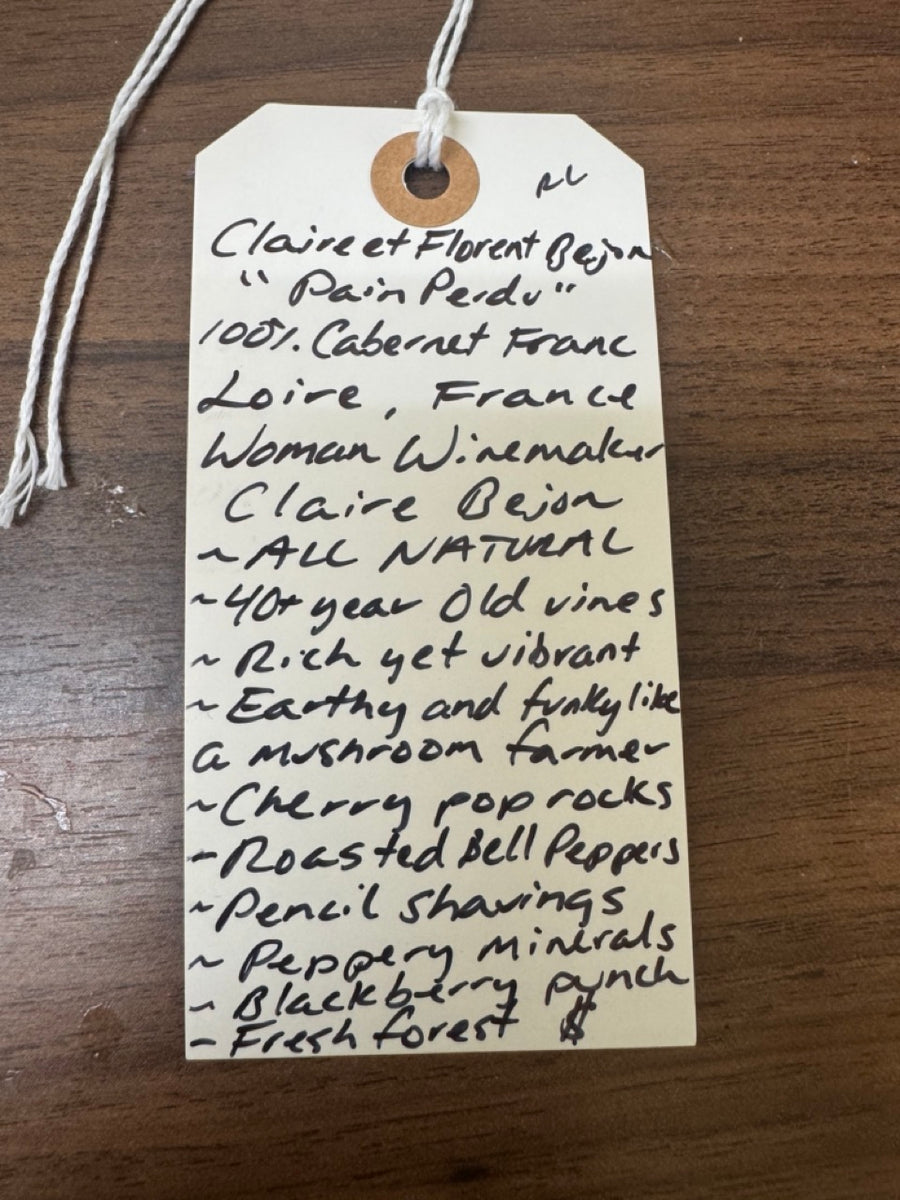 RL
Claire et Florent Bejon
"Pain Perdu"
100%. Cabernet Franc
Loire, France
Woman Winemaker
Claire Bejon
~ALL NATURAL
~40+ year Old vines
~ Rich yet vibrant
~ Earthy and funky like
a mushroom farmer
~Cherry pop rocks
~Roasted Bell Peppers
~Pencil shavings
~ Peppery minerals
~ Blackberry punch
~ Fresh forest $